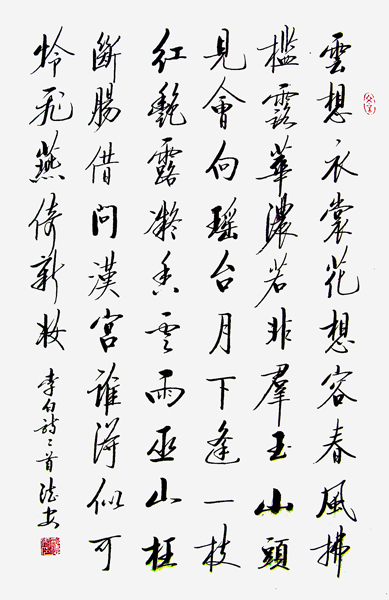 雲想衣裳花想容春風拂
檻露華濃若非羣玉山頭
見會向瑶台月下逢一枝
红艷露凝香雲雨巫山枉
斷腸借問漢宮誰得似可
怜飛燕倚新妝
李白詩二首